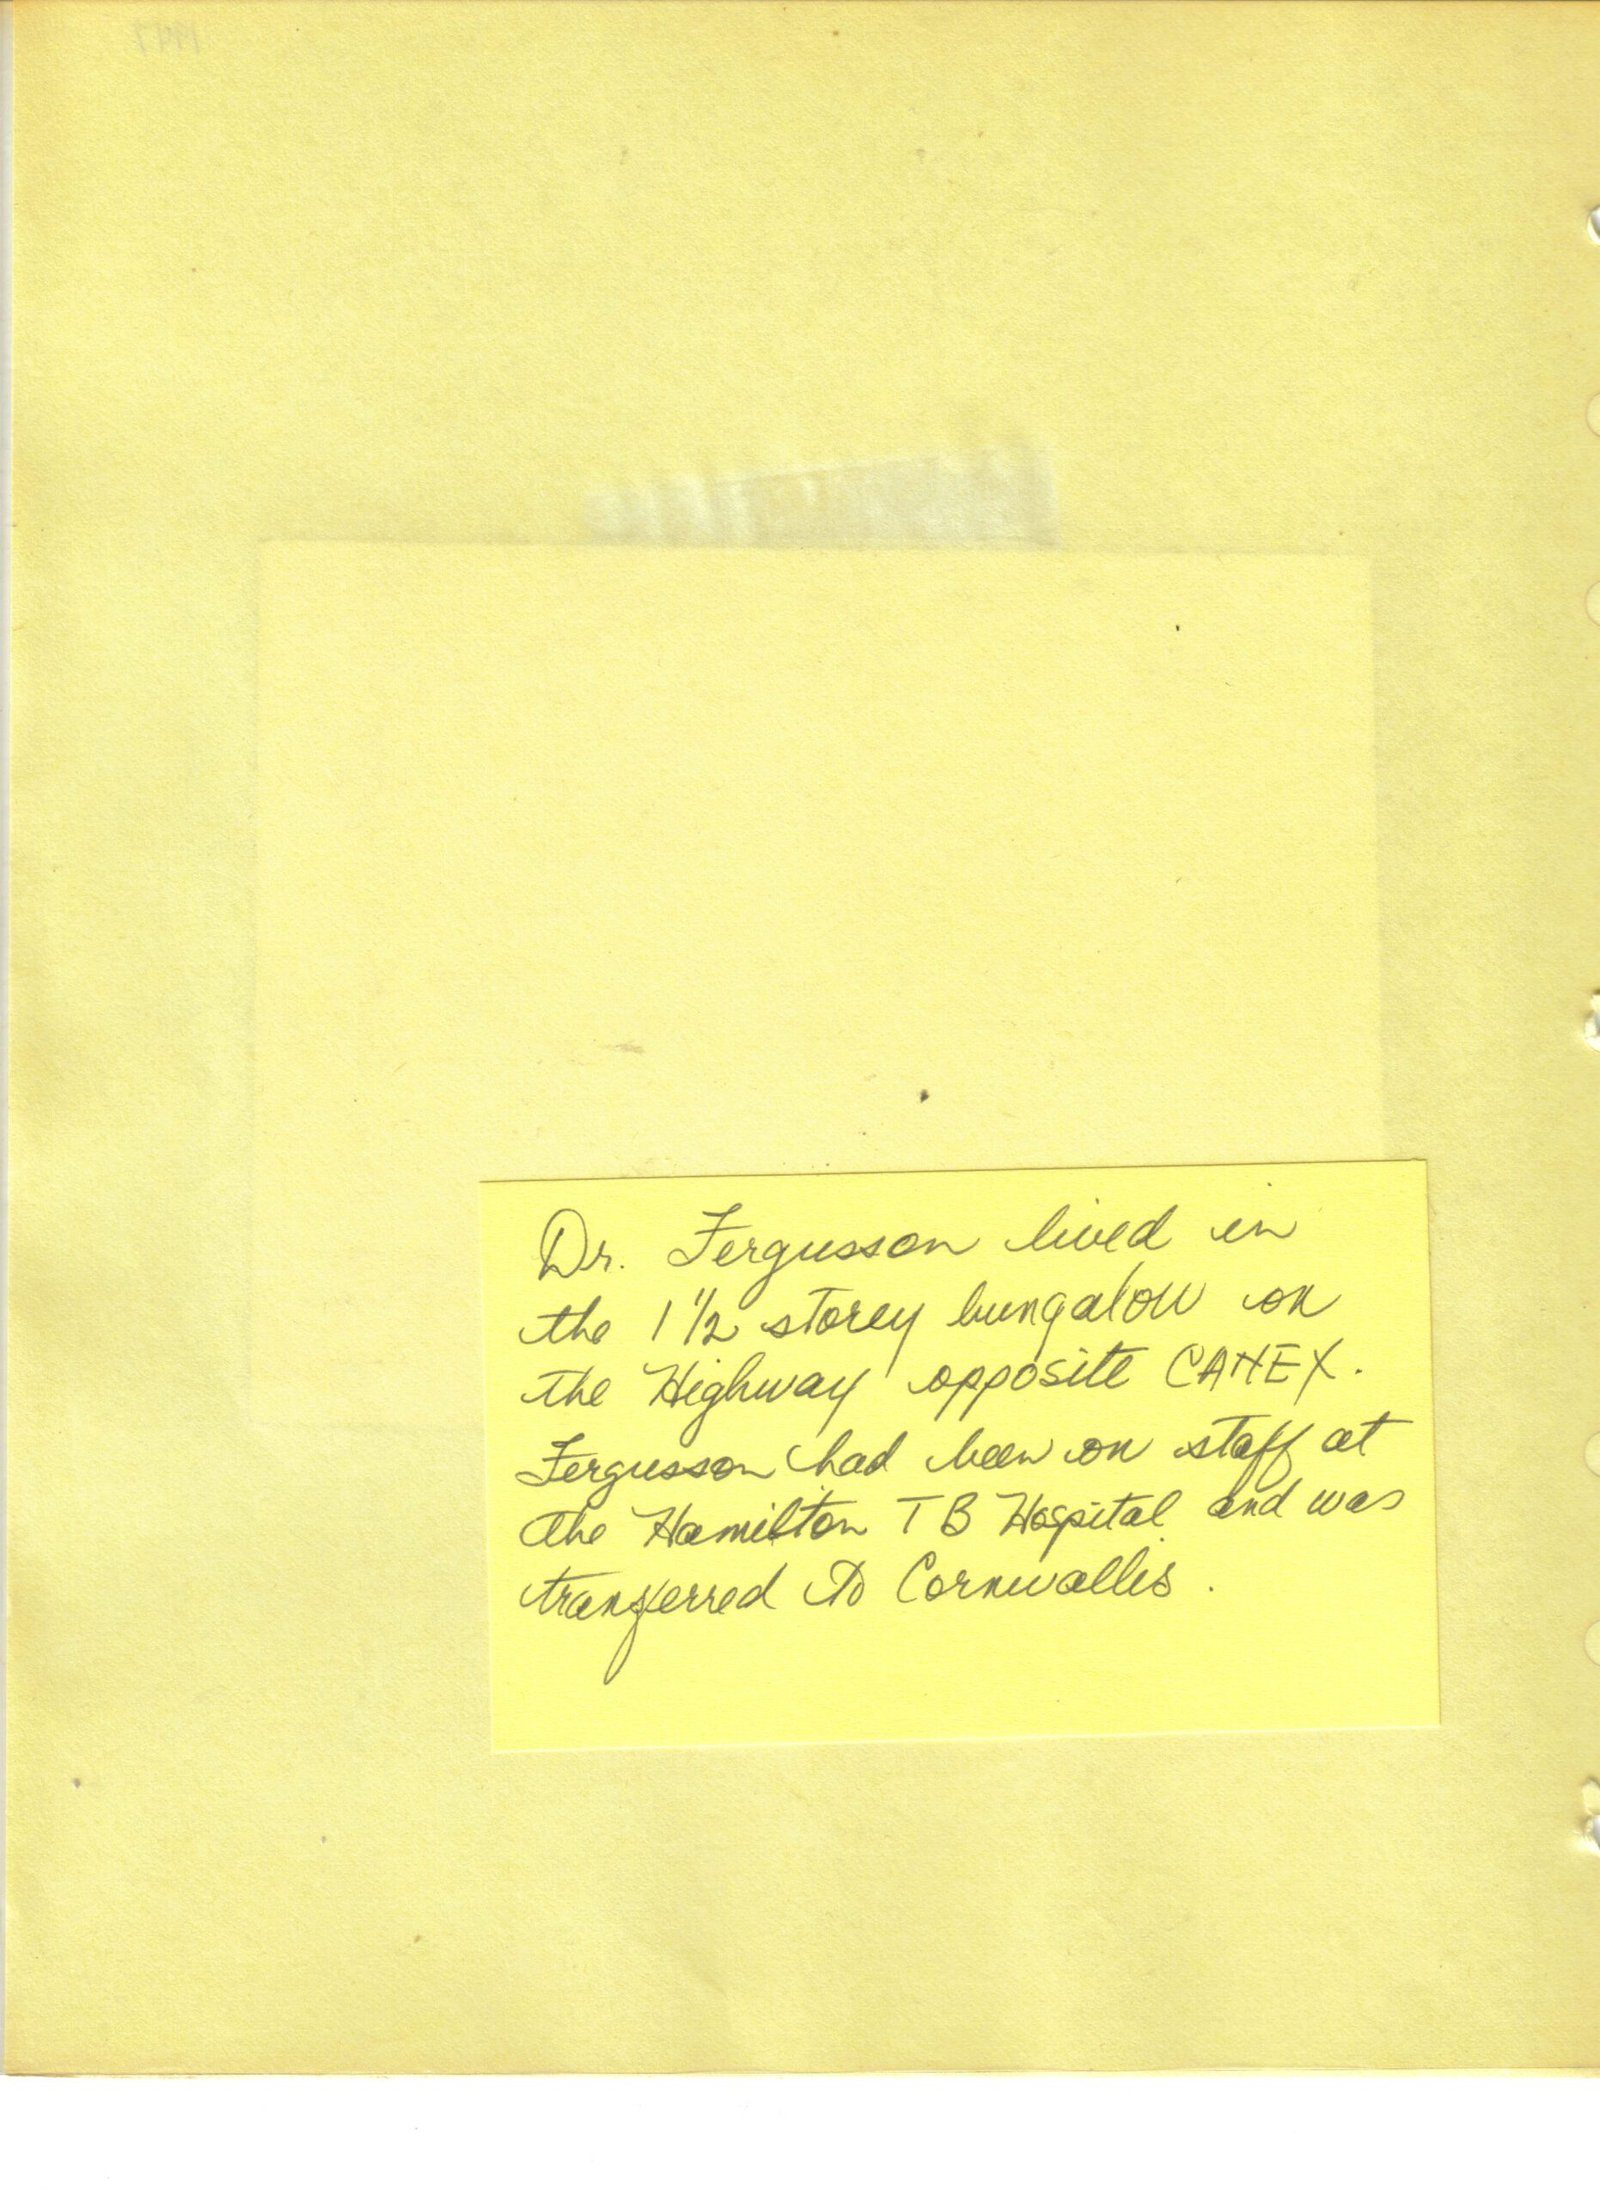 Dr. Fergusson lived in
the 1 1/2 storey bungalow on
the Highway opposite CANEX.
Fergusson had been on staff at
the Hamilton TB Hospital and was
transferred to Cornwallis.